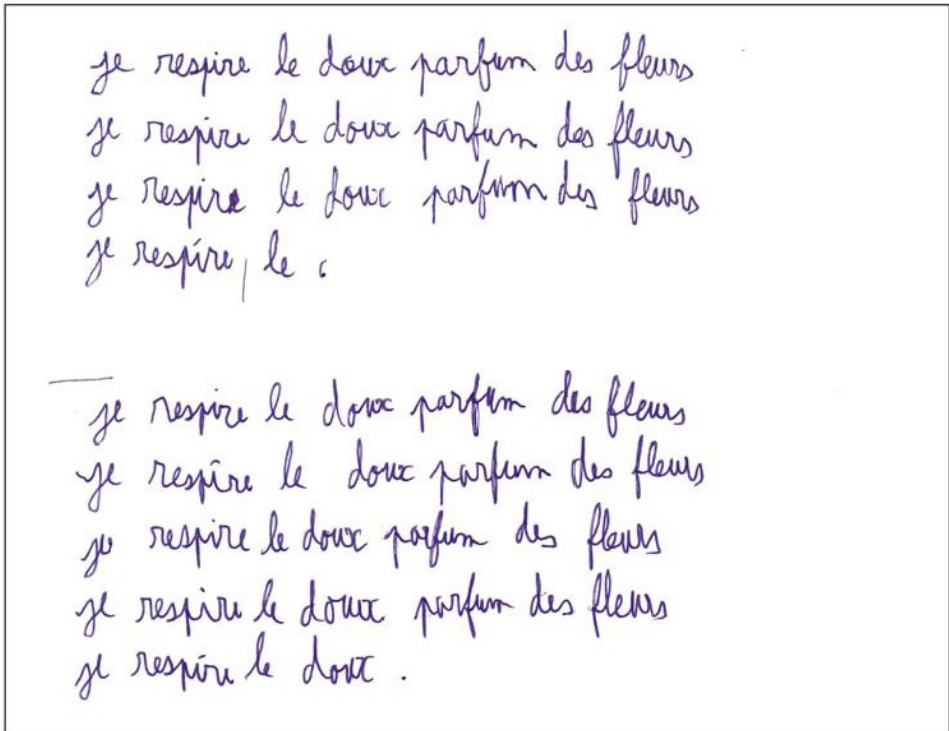 je respire le doux parfum des fleurs
je respire le doux parfum des fleurs
je respire le doux parfum des fleurs
je respire, le
je respire le doux parfum des fleurs
je respire le doux parfum des fleurs
je respire le doux parfum des fleurs
je respire le doux parfum des fleurs
je respire le doux.